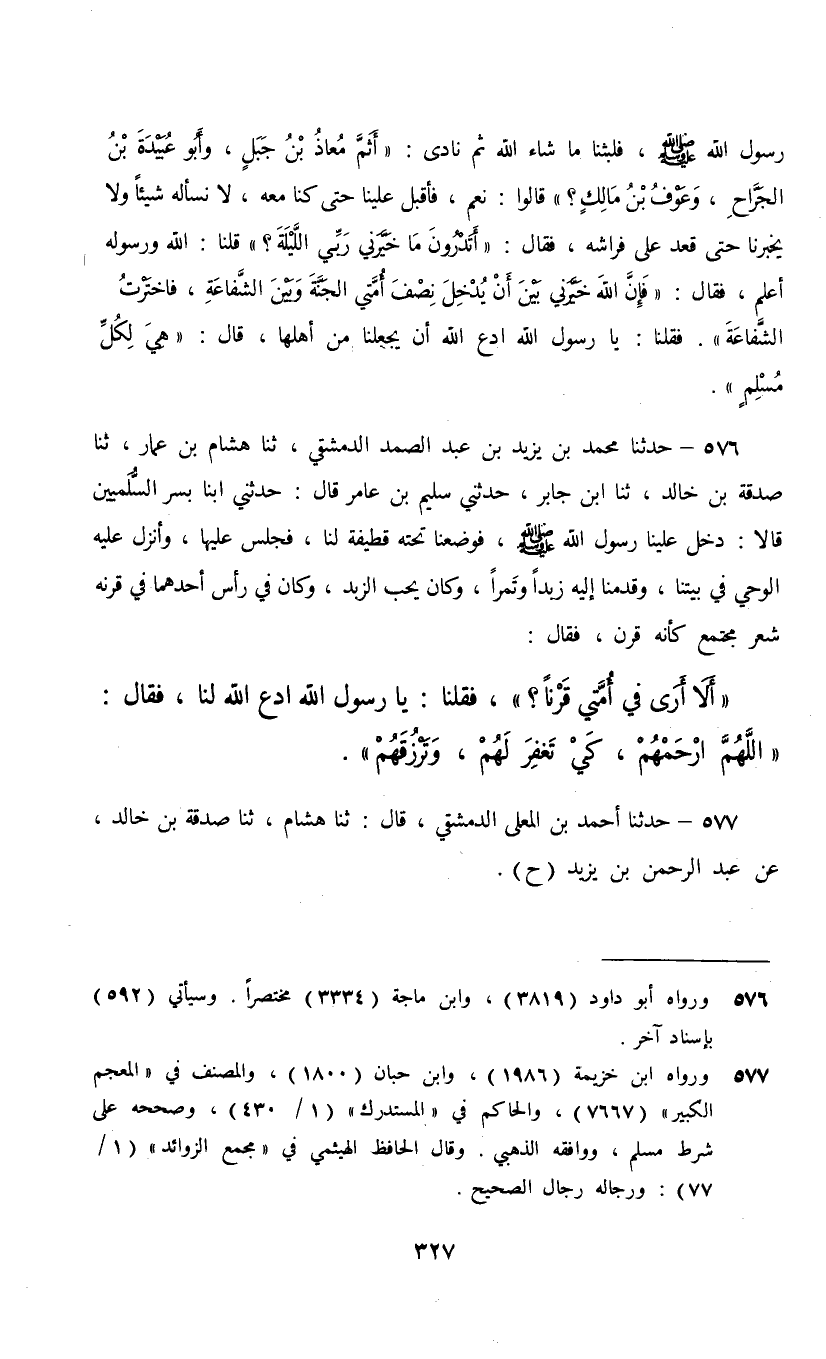 رسول الله ﷺ ، فلبثنا ما شاء الله ثم نادى : « أَثَمَّ مُعاذُ بْنُ جَبَلٍ ، وأَبُو عُبَيْدَةَ بْنُ
الجَرَّاحِ ، وَعَوْفُ بْنُ مَالِكٍ ؟ » قالوا : نعم ، فأقبل علينا حتى كنا معه ، لا نسأله شيئاً ولا
يخبرنا حتى قعد على فراشه ، فقال : « أَتَدْرُونَ مَا خَيَّرَنِي رَبِّي اللَّيْلَةَ ؟ » قلنا : الله ورسوله
أعلم ، فقال : « فَإِنَّ اللهَ خَيَّرَنِي بَيْنَ أَنْ يُدْخِلَ نِصْفَ أُمَّتِي الجَنَّةَ وَبَيْنَ الشَّفاعَةِ ، فاخْتَرْتُ
الشَّفاعَةَ » . فقلنا : يا رسول الله ادع الله أن يجعلنا من أهلها ، قال : « هِيَ لِكُلِّ
مُسْلِمٍ » .
٥٧٦ – حدثنا محمد بن يزيد بن عبد الصمد الدمشقي ، ثنا هشام بن عمار ، ثنا
صدقة بن خالد ، ثنا ابن جابر ، حدثني سليم بن عامر قال : حدثني ابنا بسر السُّلَميين
قالا : دخل علينا رسول الله ﷺ ، فوضعنا تحته قطيفة لنا ، فجلس عليها ، وأنزل عليه
الوحي في بيتنا ، وقدمنا إليه زبداً وتَمراً ، وكان يحب الزبد ، وكان في رأس أحدهما في قرنه
شعر مجتمع كأنه قرن ، فقال :
« أَلَا أَرَى فِي أُمَّتِي قَرْناً ؟ » ، فقلنا : يا رسول الله ادع الله لنا ، فقال :
« اللَّهُمَّ ارْحَمْهُمْ ، كَيْ تَغفِرَ لَهُمْ ، وَتَرْزُقَهُمْ » .
٥٧٧ – حدثنا أحمد بن المعلى الدمشقي ، قال : ثنا هشام ، ثنا صدقة بن خالد ،
عن عبد الرحمن بن يزيد ( ح ) .
٥٧٦ ورواه أبو داود (٣٨١٩) ، وابن ماجة (٣٣٣٤) مختصراً . وسيأتي (٥٩٢)
بإسناد آخر .
٥٧٧ ورواه ابن خزيمة (١٩٨٦) ، وابن حبان (١٨٠٠) ، والمصنف في « المعجم
الكبير » (٧٦٦٧) ، والحاكم في « المستدرك » (١ / ٤٣٠) ، وصححه على
شرط مسلم ، ووافقه الذهبي . وقال الحافظ الهيثمي في « مجمع الزوائد » (١ /
٧٧) : ورجاله رجال الصحيح .
٣٢٧